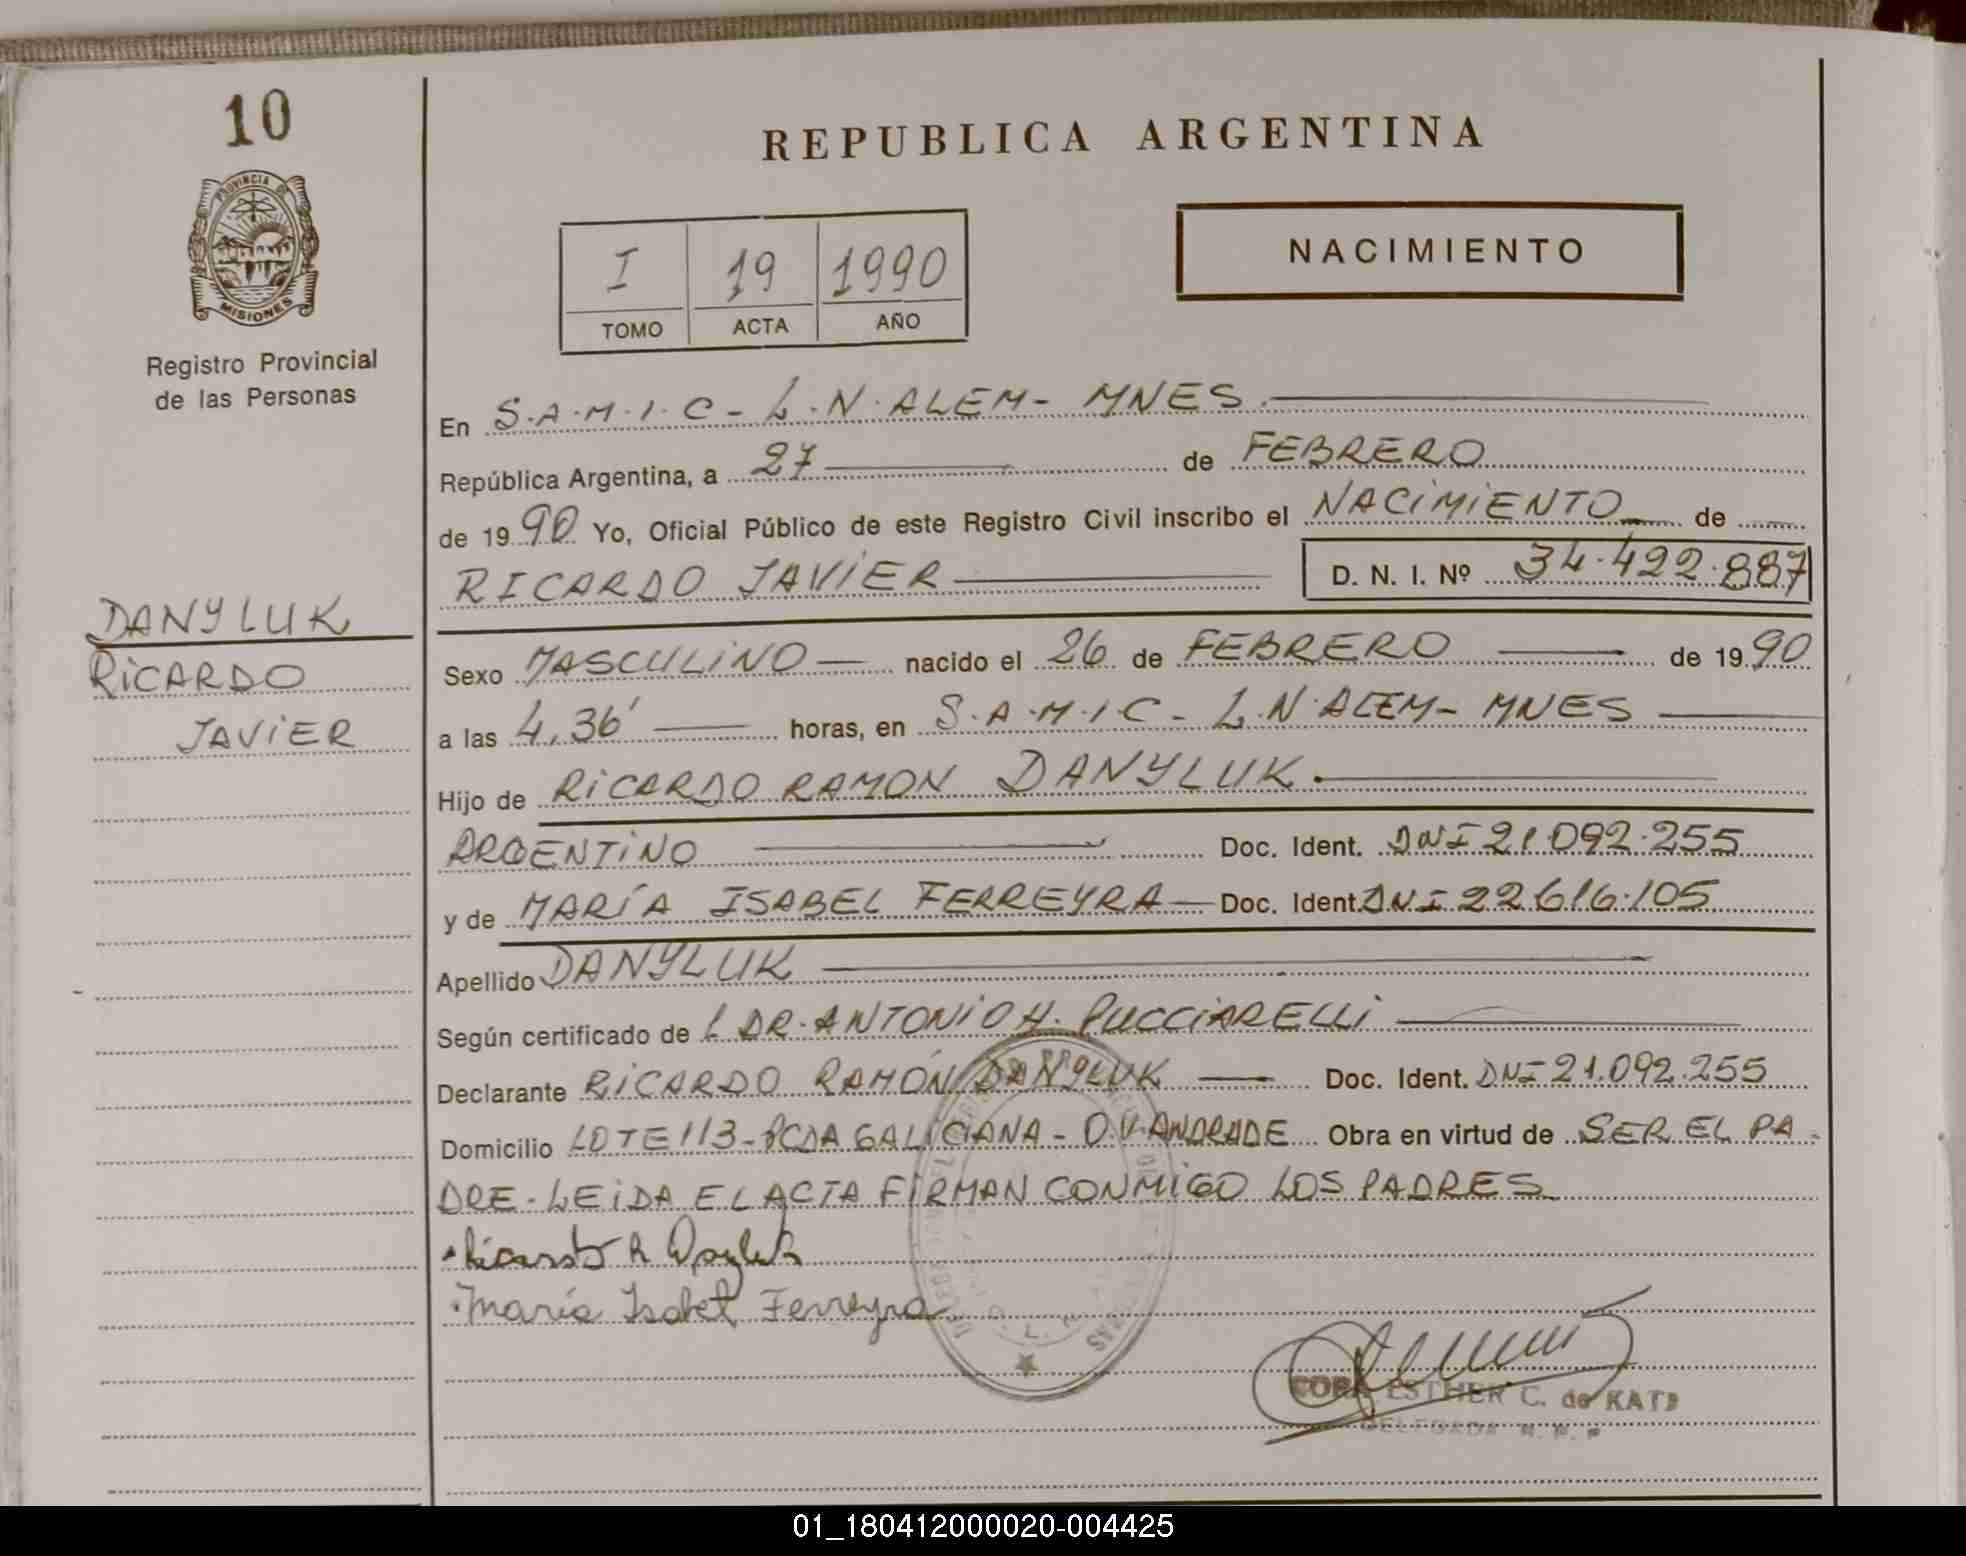 10
PROVINCIA DE
MISIONES
Registro Provincial
de las Personas
DANYLUK
RICARDO
JAVIER
REPUBLICA ARGENTINA
I 19 1990
TOMO ACTA AÑO
NACIMIENTO
En S.A.M.I.C - L.N. ALEM - MNES.
República Argentina, a 27 de FEBRERO
de 1990 Yo, Oficial Público de este Registro Civil inscribo el NACIMIENTO de
RICARDO JAVIER D. N. I. Nº 34.422.887
Sexo MASCULINO nacido el 26 de FEBRERO de 1990
a las 4,36' horas, en S.A.M.I.C - L.N. ALEM - MNES
Hijo de RICARDO RAMON DANYLUK.
ARGENTINO Doc. Ident. DNI 21.092.255
y de MARÍA ISABEL FERREYRA Doc. Ident. DNI 22.616.105
Apellido DANYLUK
Según certificado de DR. ANTONIO H. PUCCIARELLI
Declarante RICARDO RAMÓN DANYLUK Doc. Ident. DNI 21.092.255
Domicilio LOTE 113 - PCDA GALICIANA - O.V. ANDRADE Obra en virtud de SER EL PA-
DRE. LEIDA EL ACTA FIRMAN CONMIGO LOS PADRES
Ricardo R Danyluk
María Isabel Ferreyra
ESTHER C. de KATZ
DELEGADA R. P. P
01_180412000020-004425